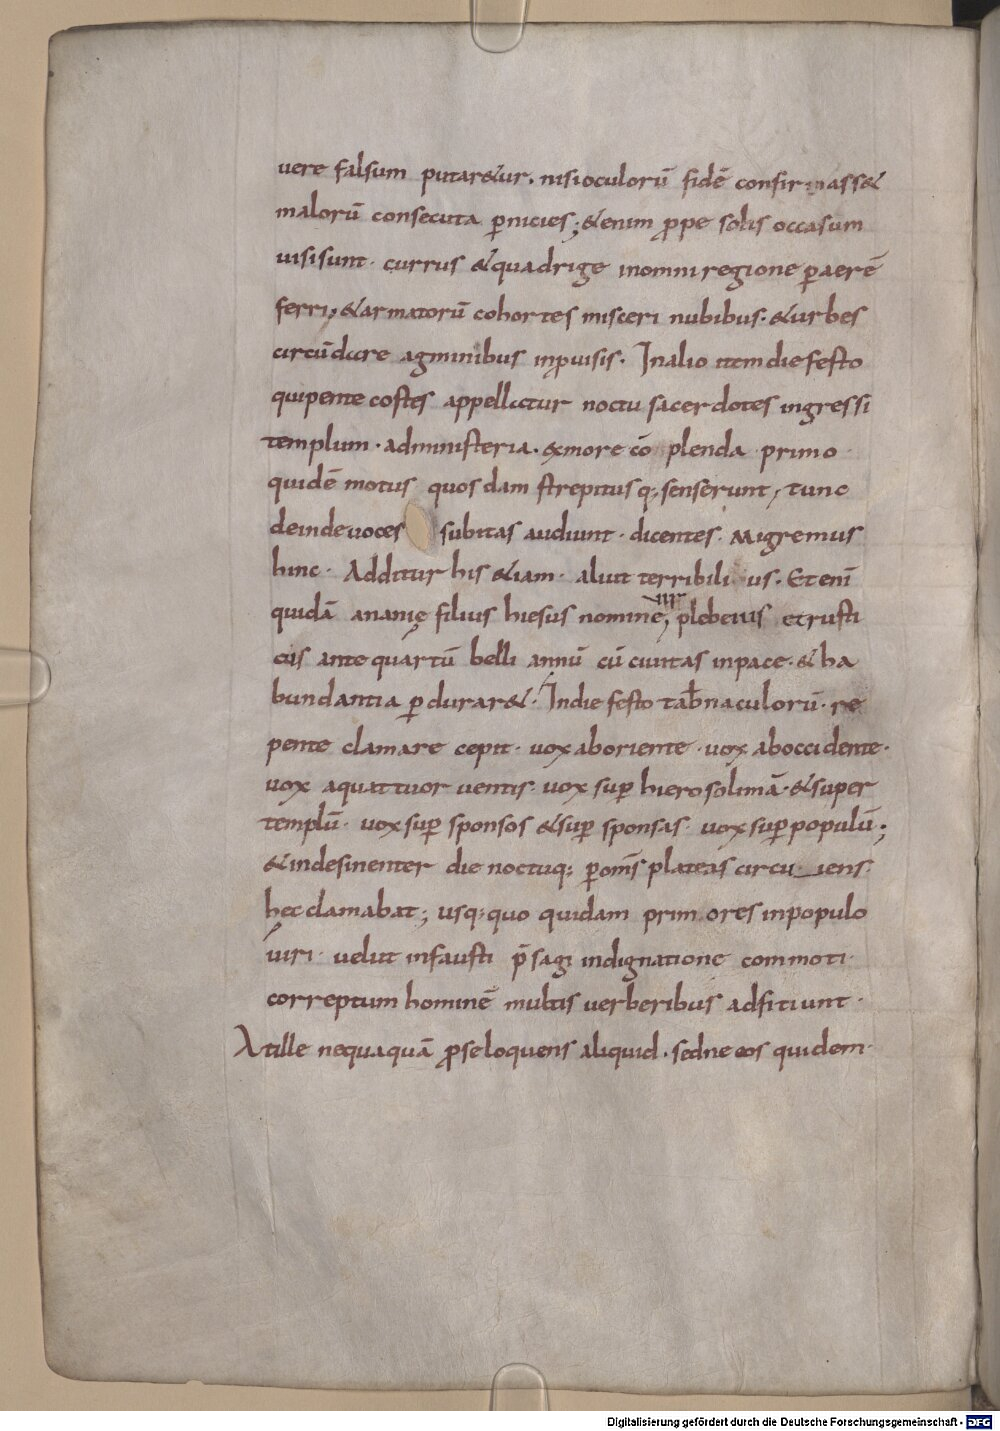 uere falsum putar&ur. nisi oculorū fidē confirmass&
malorū consecuta ꝑnicies; &enim ꝓpe solis occasum
uisi sunt. currus & quadrige in omni regione ꝑ aerē
ferri, & armatorū cohortes misceri nubibus. & urbes
circūdare agminibus inprouisis. In alio item die festo
qui pentecostes appellatur noctu sacerdotes ingressi
templum. ad ministeria. ex more cōplenda primo
quidē motus quosdam strepitusq; senserunt, tunc
deinde uoces subitas audiunt. dicentes. Migremus
hinc. Additur his &iam. aliut terribilius. Et enī
quidā ananię filius hiesus nomine, plebeius et rusti
cus ante quartū belli annū cū ciuitas in pace. & ha
bundantia ꝑdurar&. In die festo tab̄naculorū. re
pente clamare cepit. uox ab oriente. uox ab occidente.
uox a quattuor uentis. uox suꝑ hierosolimā. & super
templū. uox suꝑ sponsos & suꝑ sponsas. uox suꝑ populū;
& indesinenter die noctuq; ꝑ om̄s plateas circu iens.
hęc clamabat; usq; quo quidam primores in populo
uiri. uelut infausti p̄sagi indignatione commoti.
correptum hominē multis uerberibus adfitiunt.
At ille nequaquā ꝓ se loquens aliquid. sed ne eos quidem.
Digitalisierung gefördert durch die Deutsche Forschungsgemeinschaft - DFG